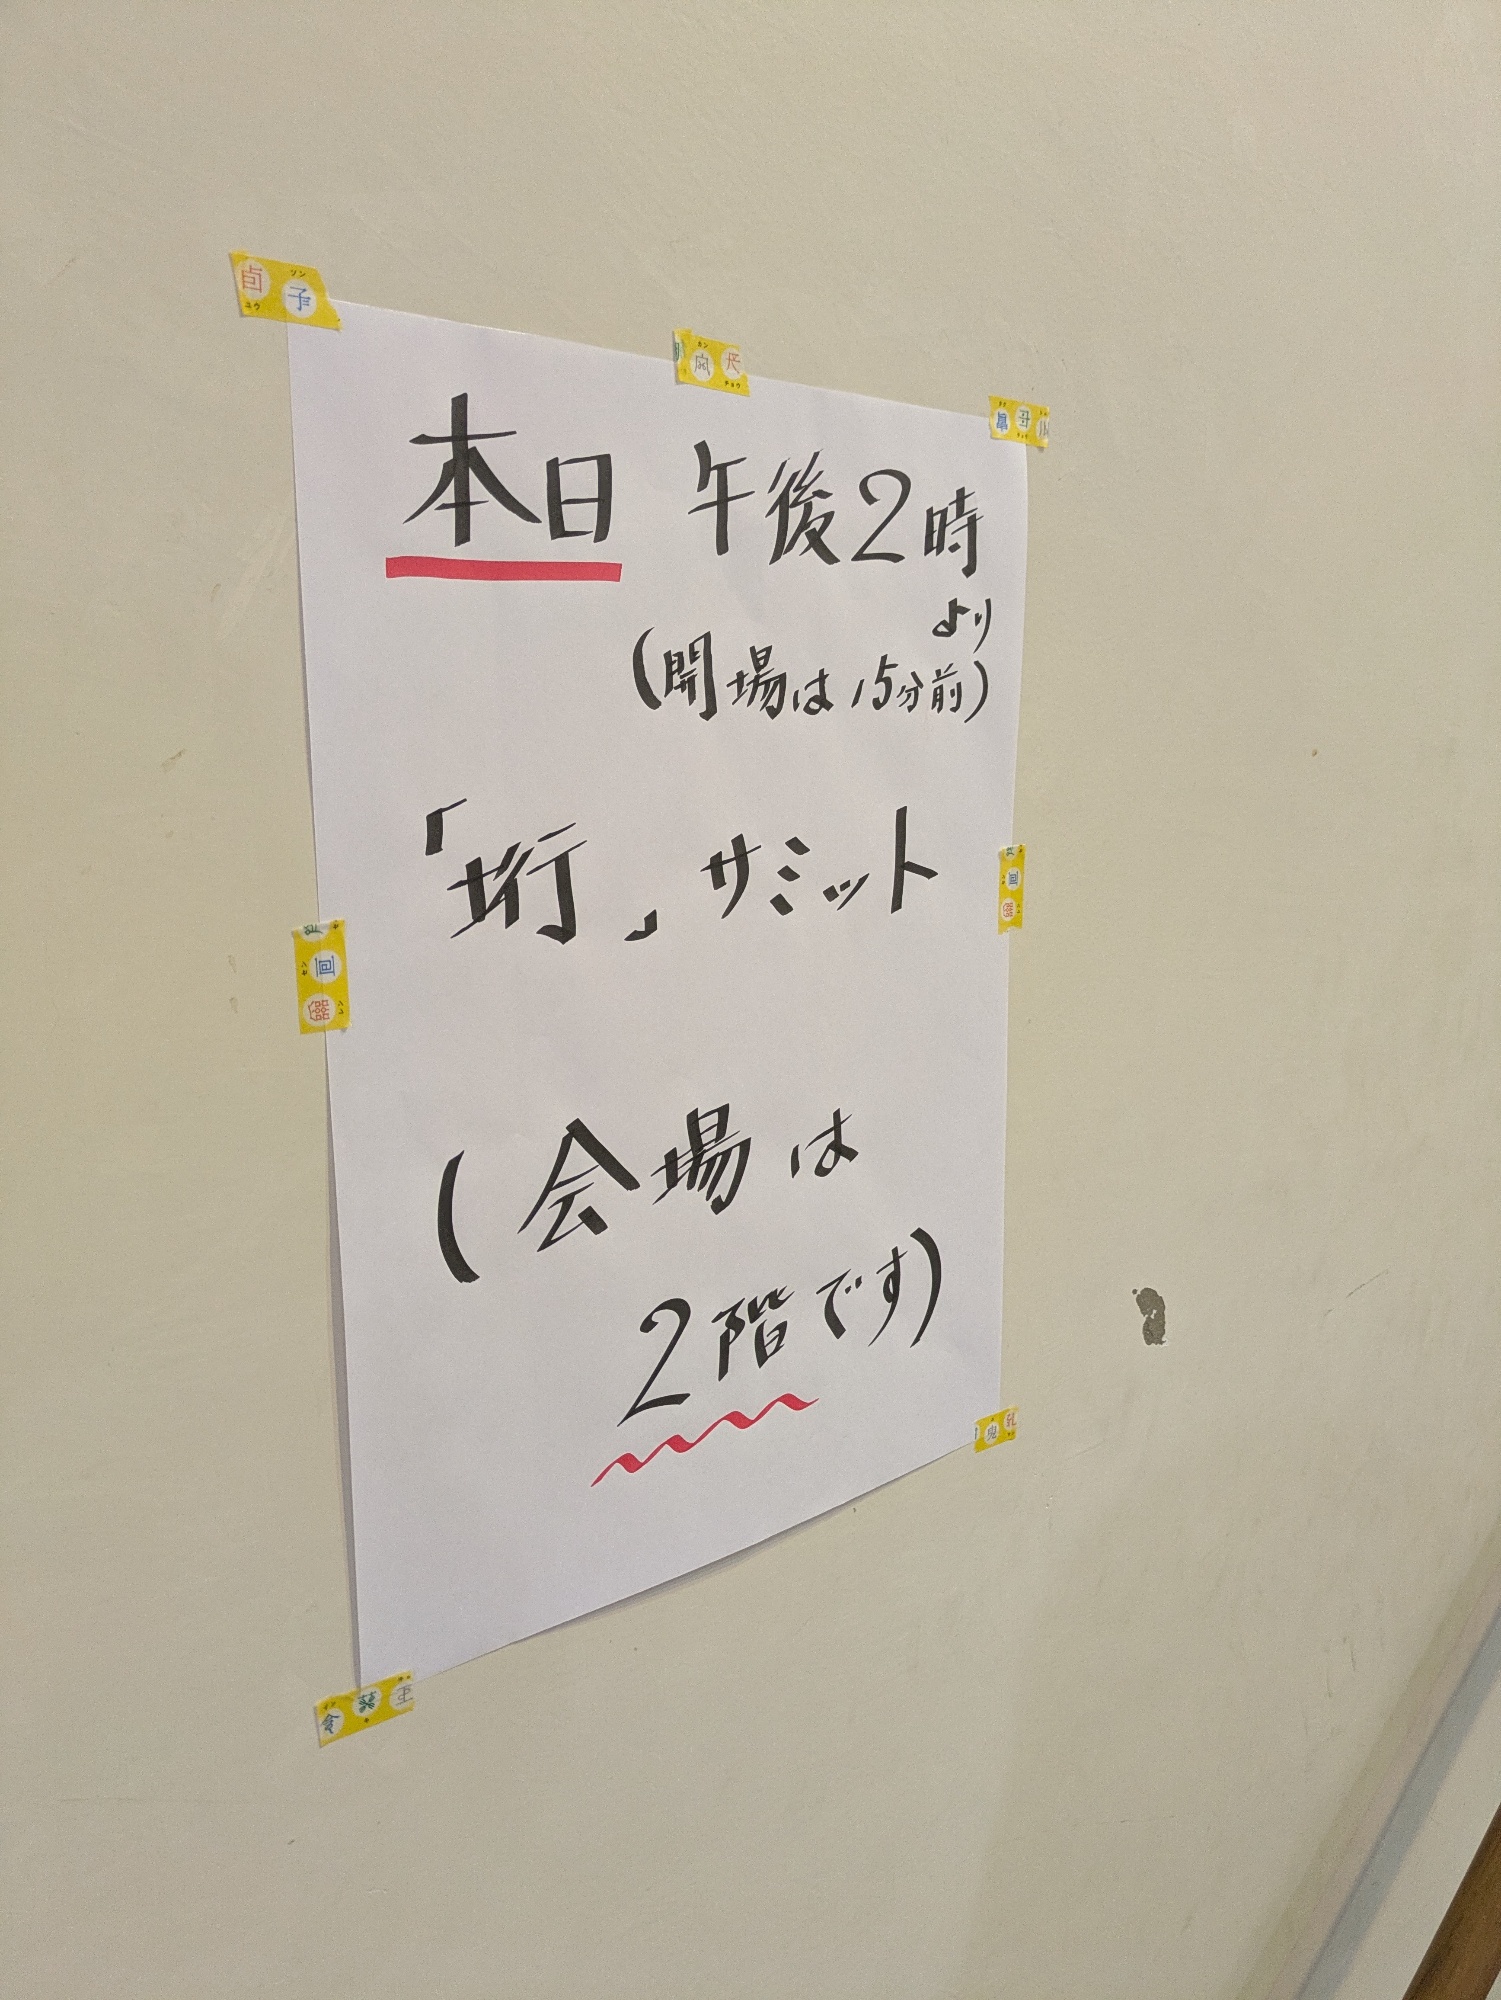 本日 午後2時
より
(開場は15分前)
「垳」サミット
(会場は
2階です)